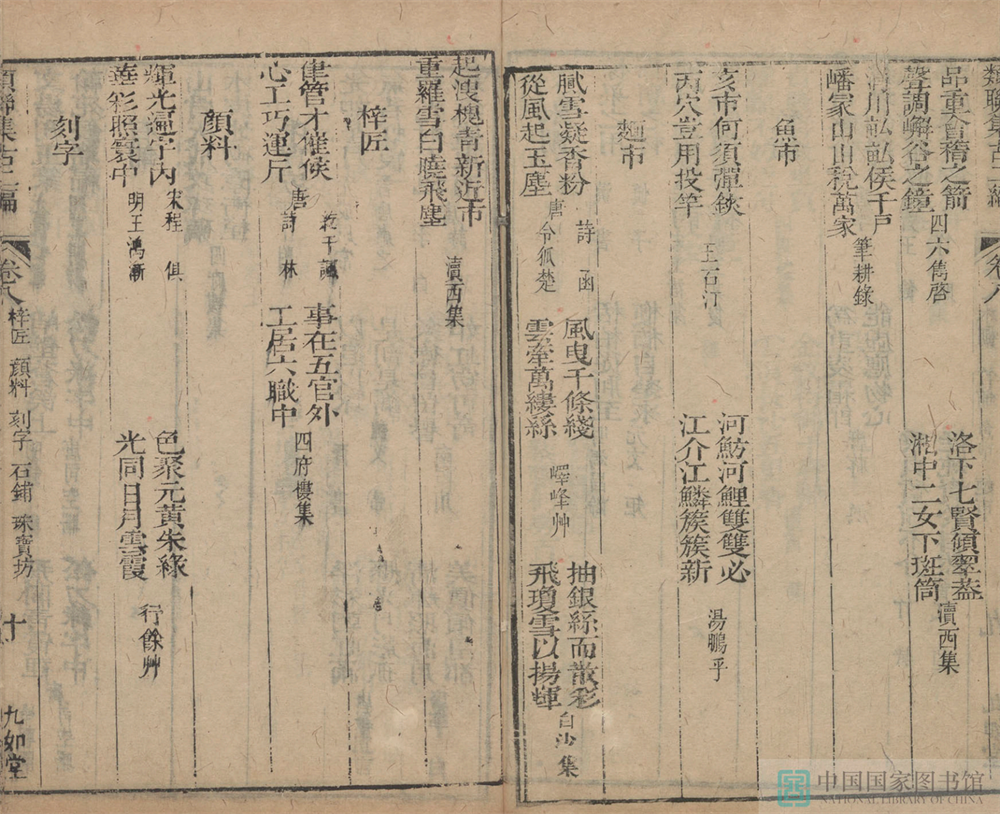 品重會稽之箭
聲調嶰谷之鐘 四六雋啓
洛下七賢傾翠蓋
湘中二女下斑筒 瀆西集
渭川畝畝侯千戸
嶓冢山山稅萬家 筆耕錄
魚市
亥市何須彈鋏
丙穴豈用投竿 王石汀
河魴河鯉雙雙必
江介江鱗簇簇新 湯鵬乎
麵市
膩雪凝香粉 詩函
從風起玉塵 唐令狐楚
風曳千條綫
雲牽萬縷絲 嶧峰艸
抽銀絲而散彩
飛瓊雪以揚輝 白沙集
起溲槐青新近市
重羅雪白曉飛塵 瀆西集
梓匠
隼管才催候
心工巧運斤 唐詩林
事在五官外
工居六職中 四府樓集
顏料
輝光遍宇內 宋程俱
華彩照寰中 明王鴻漸
色聚元黃朱綠
光同日月雲霞 行餘艸
刻字
類聯集古二編 卷八 梓匠 顏料 刻字 石鋪 珠寶坊 十 九如堂
中国国家图书馆
NATIONAL LIBRARY OF CHINA